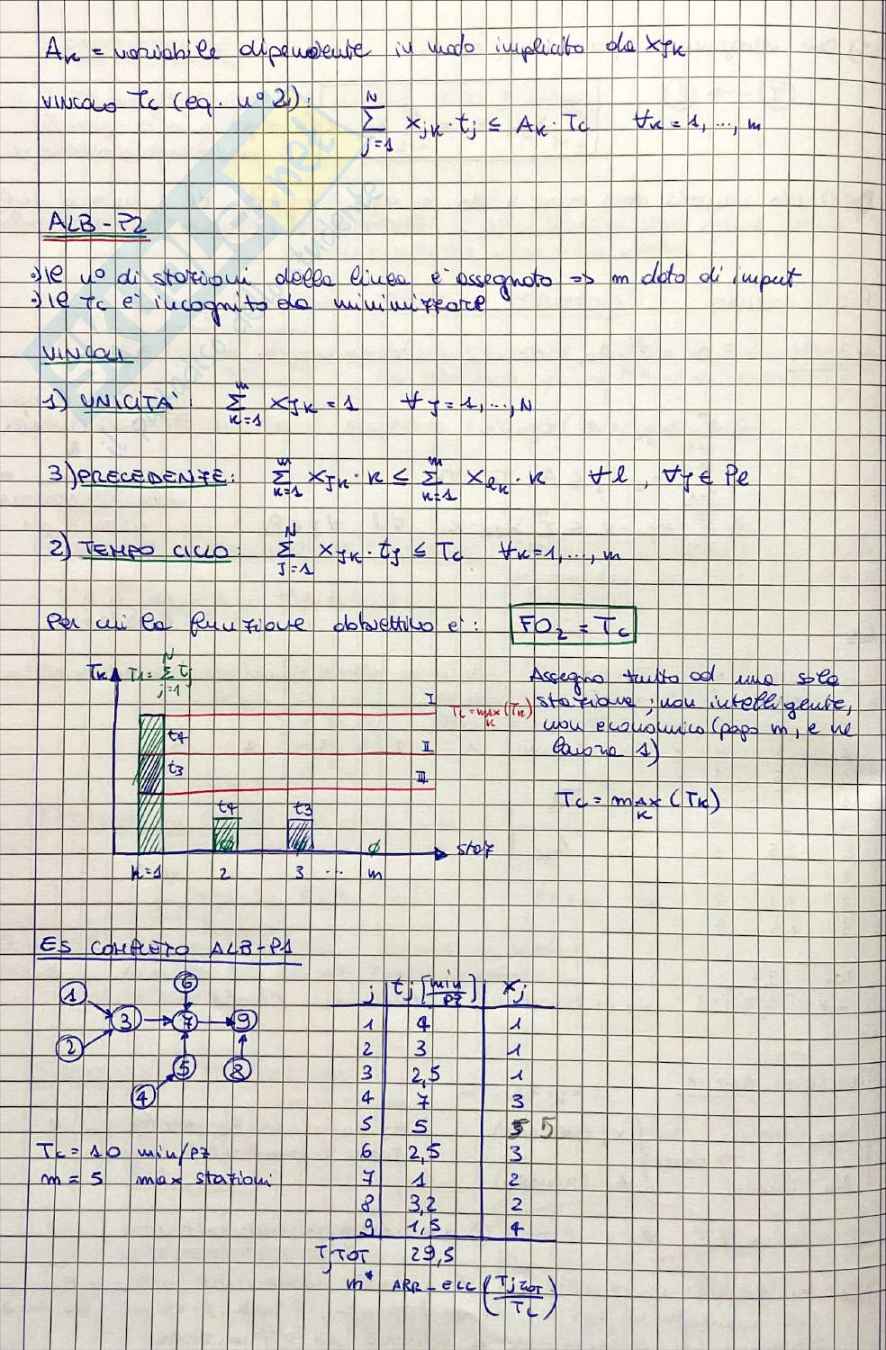 Ak = variabile dipendente in modo implicito da xjk
VINCOLO Tc (eq. n° 2): N∑j=1 xjk · tj ≤ Ak · Tc ∀k = 1, ..., m
ALB-P2
•) Il n° di stazioni della linea è assegnato => m dato di input
•) Il Tc è incognito da minimizzare
VINCOLI
1) UNICITA': m∑k=1 xjk = 1 ∀j = 1, ..., N
3) PRECEDENZE: m∑k=1 xjk · k ≤ m∑k=1 xlk · k ∀l, ∀j ∈ Pl
2) TEMPO CICLO: N∑j=1 xjk · tj ≤ Tc ∀k = 1, ..., m
Per cui la funzione obbiettivo è: FO2 = Tc
Tk T1 = N∑j=1 tj
I
Tc = max k (Tk)
t4
II
t3
III
t4 t3
∅ staz
k=1 2 3 ... m
Assegno tutto ad una sola
stazione; non intelligente,
non economico (pago m, e ne
lavora 1)
Tc = max k (Tk)
ES COMPLETO ALB-P1
1 2 3 4 5 6 7 8 9
Tc = 10 min/pz
m = 5 max stazioni
j tj [min/pz] xj
1 4 1
2 3 1
3 2,5 1
4 7 3
5 5 5 5
6 2,5 3
7 1 2
8 3,2 2
9 1,5 4
TjTOT 29,5
m* ARR-ecc (TjTOT/Tc)